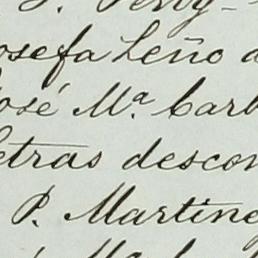 J. Perry-
osefa Leño a
José Mª Carb
etras descon
P. Martine